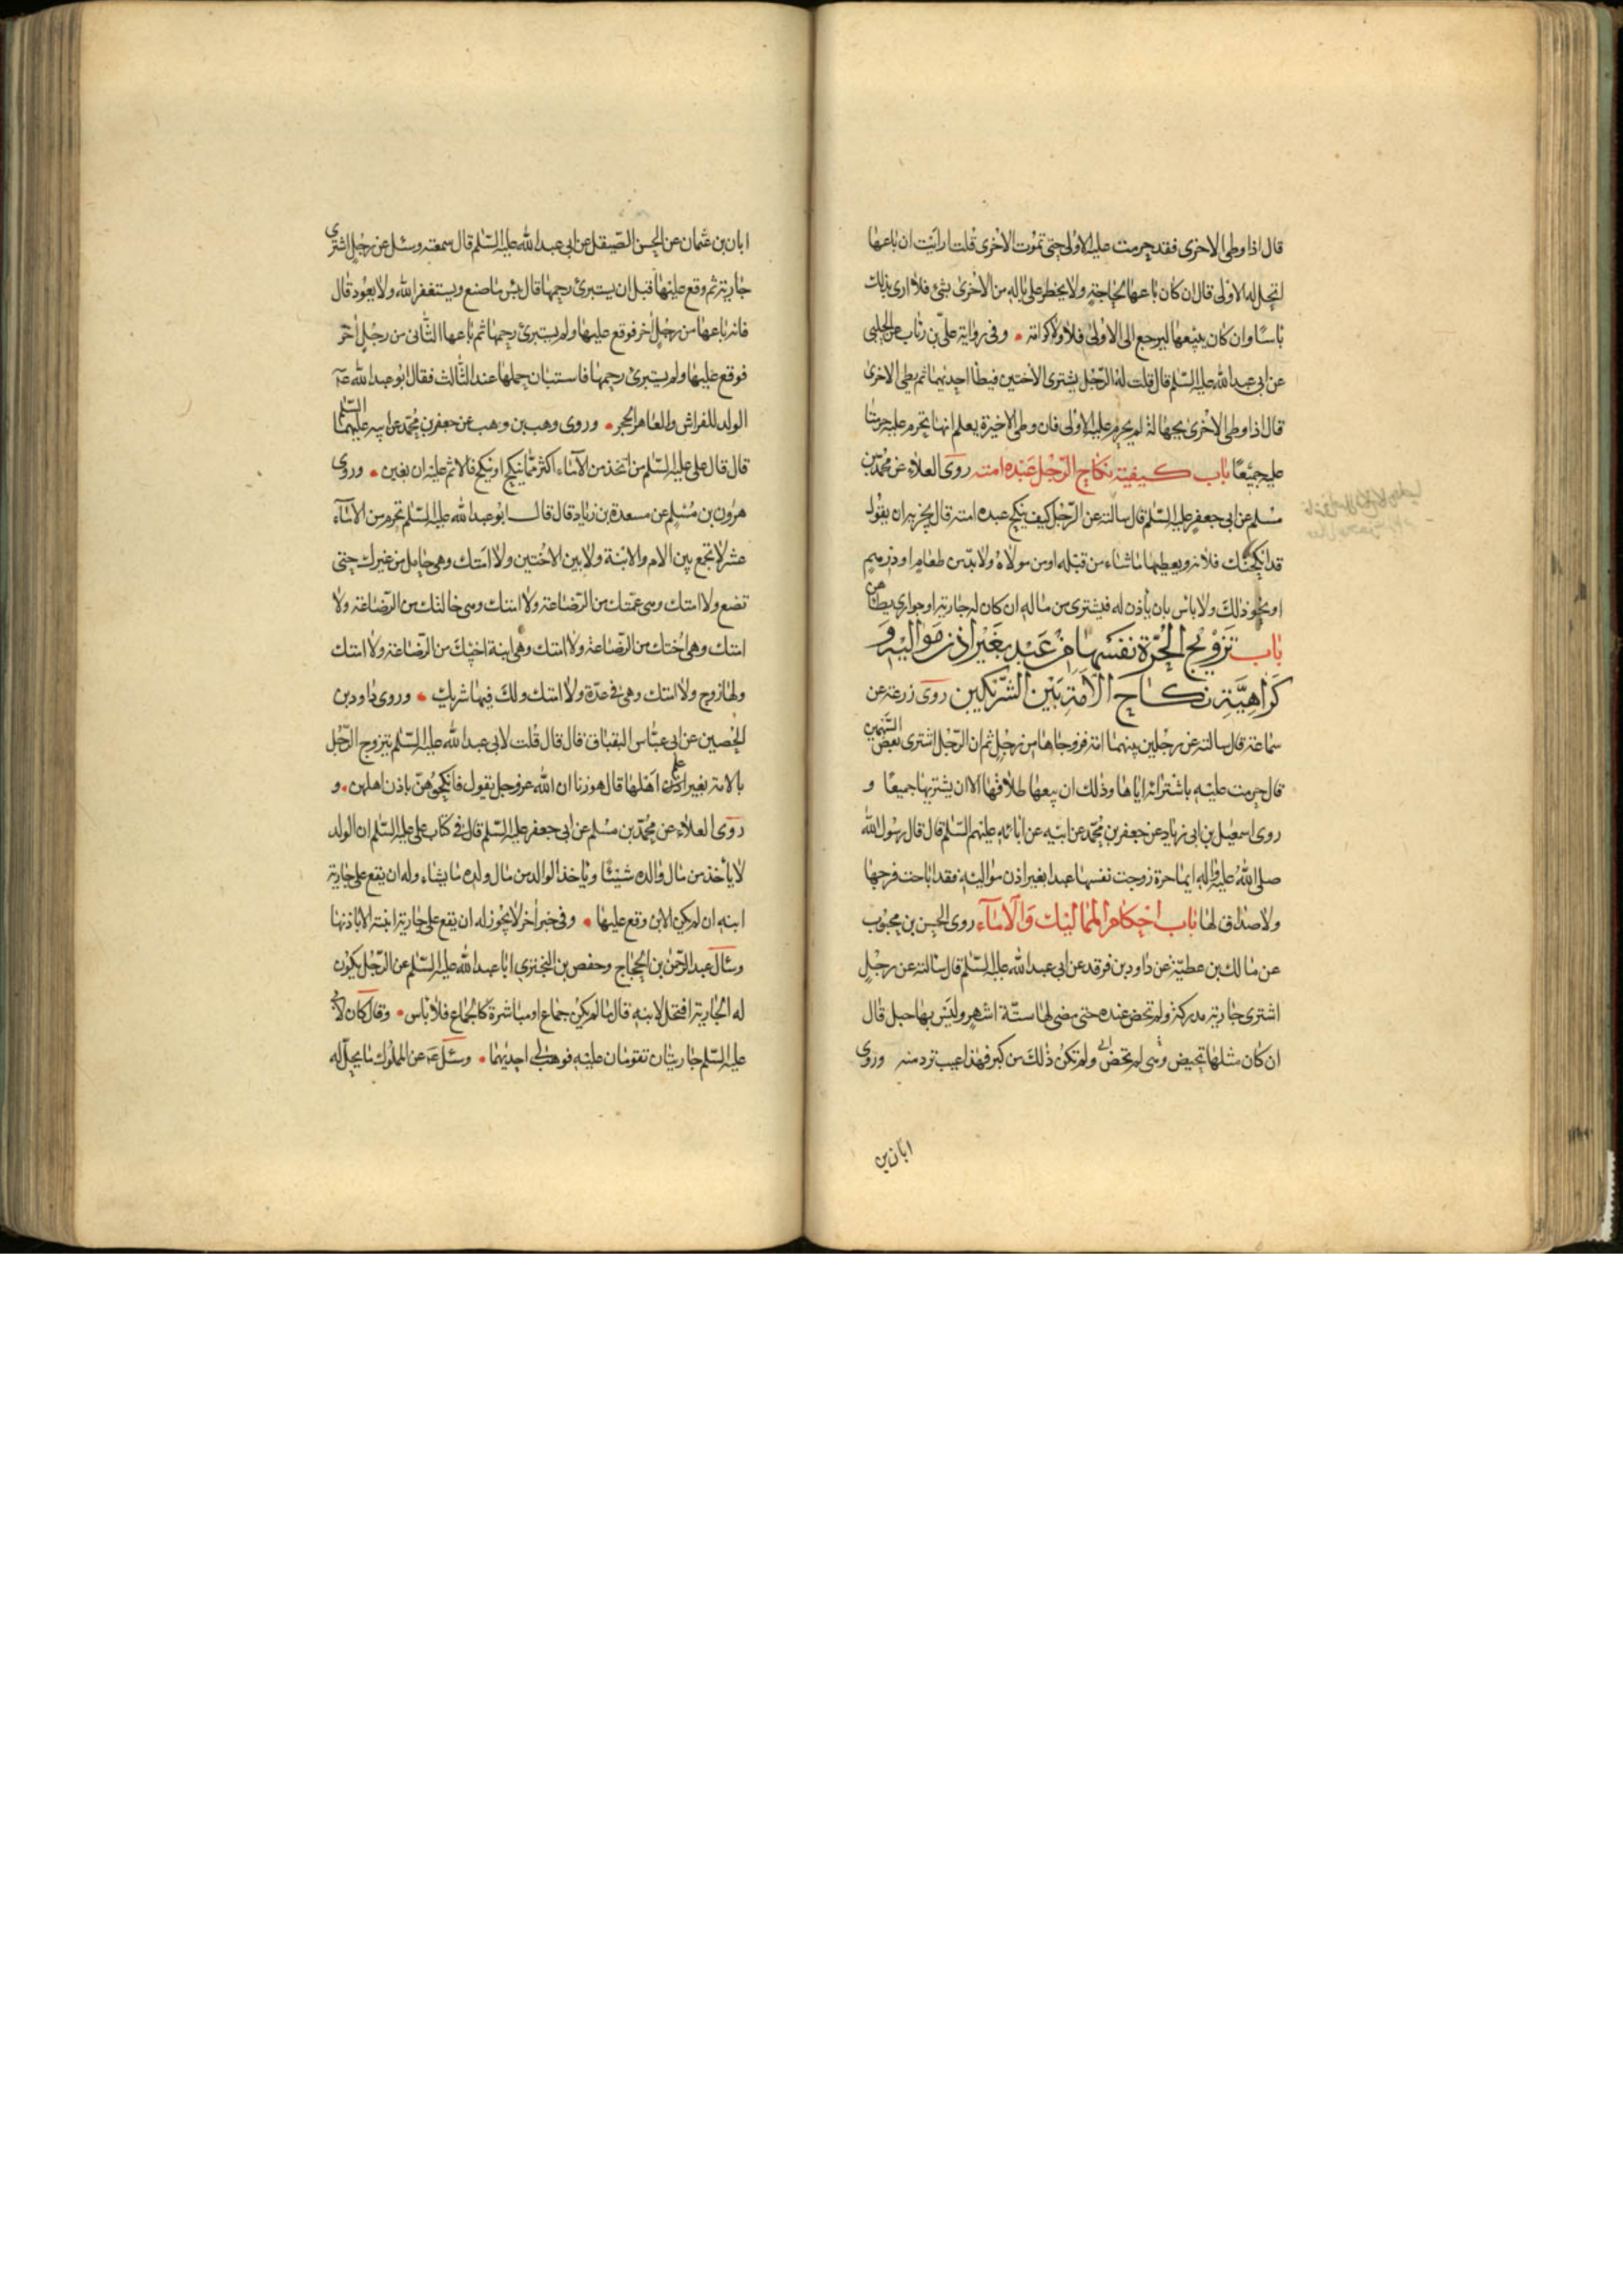 قال اذا وطى الاخرى فقد حرمت عليه الاولى حتى تموت الاخرى قلت ارايت ان باعها
اتحل له الاولى قال ان كان باعها لحاجة ولا يخطر على باله من الاخرى شئ فلا ارى بذلك
باسا وان كان يبيعها ليرجع الى الاولى فلا ولا كرامة وفى رواية على بن رئاب عن الحلبى
عن ابى عبد الله عليه السلم قال قلت له الرجل يشترى الاختين فيطأ احديهما ثم يطى الاخرى
قال اذا وطى الاخرى بجهالة لم يحرم عليه الاولى فان وطى الاخيرة يعلم انها تحرم عليه حرمتا
عليه جميعا باب كيفية نكاح الرجل عبده امته روى العلاء عن محمد بن
مسلم عن ابى جعفر عليه السلم قال سالته عن الرجل كيف ينكح عبده امته قال يجزيه ان يقول
قد انكحتك فلانه ويعطيها ما شاء من قبله او من مولاه ولا بد من طعام او درهم
او نحو ذلك ولا باس بان ياذن له فيشترى من ماله ان كان له جارية او جوارى يطأهن
باب تزويج الحرة نفسها من عبد بغير اذن مواليه و
كراهية نكاح الامة بين الشريكين روى زرعة عن
سماعة قال سالته عن رجلين بينهما امة فزوجاها من رجل ثم ان الرجل اشترى بعض السهمين
قال حرمت عليه باشترائه اياها وذلك ان بيعها طلاقها الا ان يشتريها جميعا و
روى اسمعيل بن ابى زياد عن جعفر بن محمد عن ابيه عن ابائه عليهم السلم قال قال رسول الله
صلى الله عليه واله ايما حرة زوجت نفسها عبدا بغير اذن مواليه فقد اباحت فرجها
ولا صداق لها باب احكام المماليك والاماء روى الحسن بن محبوب
عن مالك بن عطية عن داود بن فرقد عن ابى عبد الله عليه السلم قال سالته عن رجل
اشترى جارية مدركة ولم تحض عنده حتى مضى لها ستة اشهر وليس بها حبل قال
ان كان مثلها تحيض ولم تكن ذلك من كبر فهذا عيب ترد منه وروى
ابان بن
ابان بن عثمان عن الحسن الصيقل عن ابى عبد الله عليه السلم قال سمعته وسئل عن رجل اشترى
جارية ثم وقع عليها قبل ان يستبرئ رحمها قال بئس ما صنع ويستغفر الله ولا يعود قال
فانه باعها من رجل اخر فوقع عليها ولم يستبرئ رحمها ثم باعها الثانى من رجل اخر
فوقع عليها ولم يستبرئ رحمها فاستبان حملها عند الثالث فقال ابو عبد الله عه
الولد للفراش وللعاهر الحجر وروى وهب بن وهب عن جعفر بن محمد عن ابيه عليهما السلم
قال قال على عليه السلم من اتخذ من الاماء اكثر مما ينكح او ينكح فالاثم عليه ان بغين وروى
هرون بن مسلم عن مسعدة بن زياد قال قال ابو عبد الله عليه السلم تحرم من الاماء
عشر لا تجمع بين الام والابنة ولا بين الاختين ولا امتك وهى حامل من غيرك حتى
تضع ولا امتك وهى عمتك من الرضاعة ولا امتك وهى خالتك من الرضاعة ولا
امتك وهى اختك من الرضاعة ولا امتك وهى ابنة اختك من الرضاعة ولا امتك
ولها زوج ولا امتك وهى فى عدة ولا امتك ولك فيها شريك وروى داود بن
الحصين عن ابى عباس البقباق قال قال قلت لابى عبد الله عليه السلم يتزوج الرجل
بالامة بغير علم اهلها قال هو زنا ان الله عز وجل يقول فانكحوهن باذن اهلهن و
روى العلاء عن محمد بن مسلم عن ابى جعفر عليه السلم قال فى كتاب على عليه السلم ان الولد
لا ياخذ من مال والده شيئا وياخذ الوالد من مال ولده ما يشاء وله ان يقع على جارية
ابنه ان لم يكن الابن وقع عليها وفى خبر اخر لا يجوز له ان يقع على جارية ابنته الا باذنها
وسال عبد الرحمن بن الحجاج وحفص بن البخترى ابا عبد الله عليه السلم عن الرجل يكون
له الجارية افتحل لابنه قال ما لم يكن جماع او مباشرة كالجماع فلا باس وقال كان لابى
عليه السلم جاريتان تقومان عليه فوهب لى احديهما وسئل عه عن المملوك ما يحل له